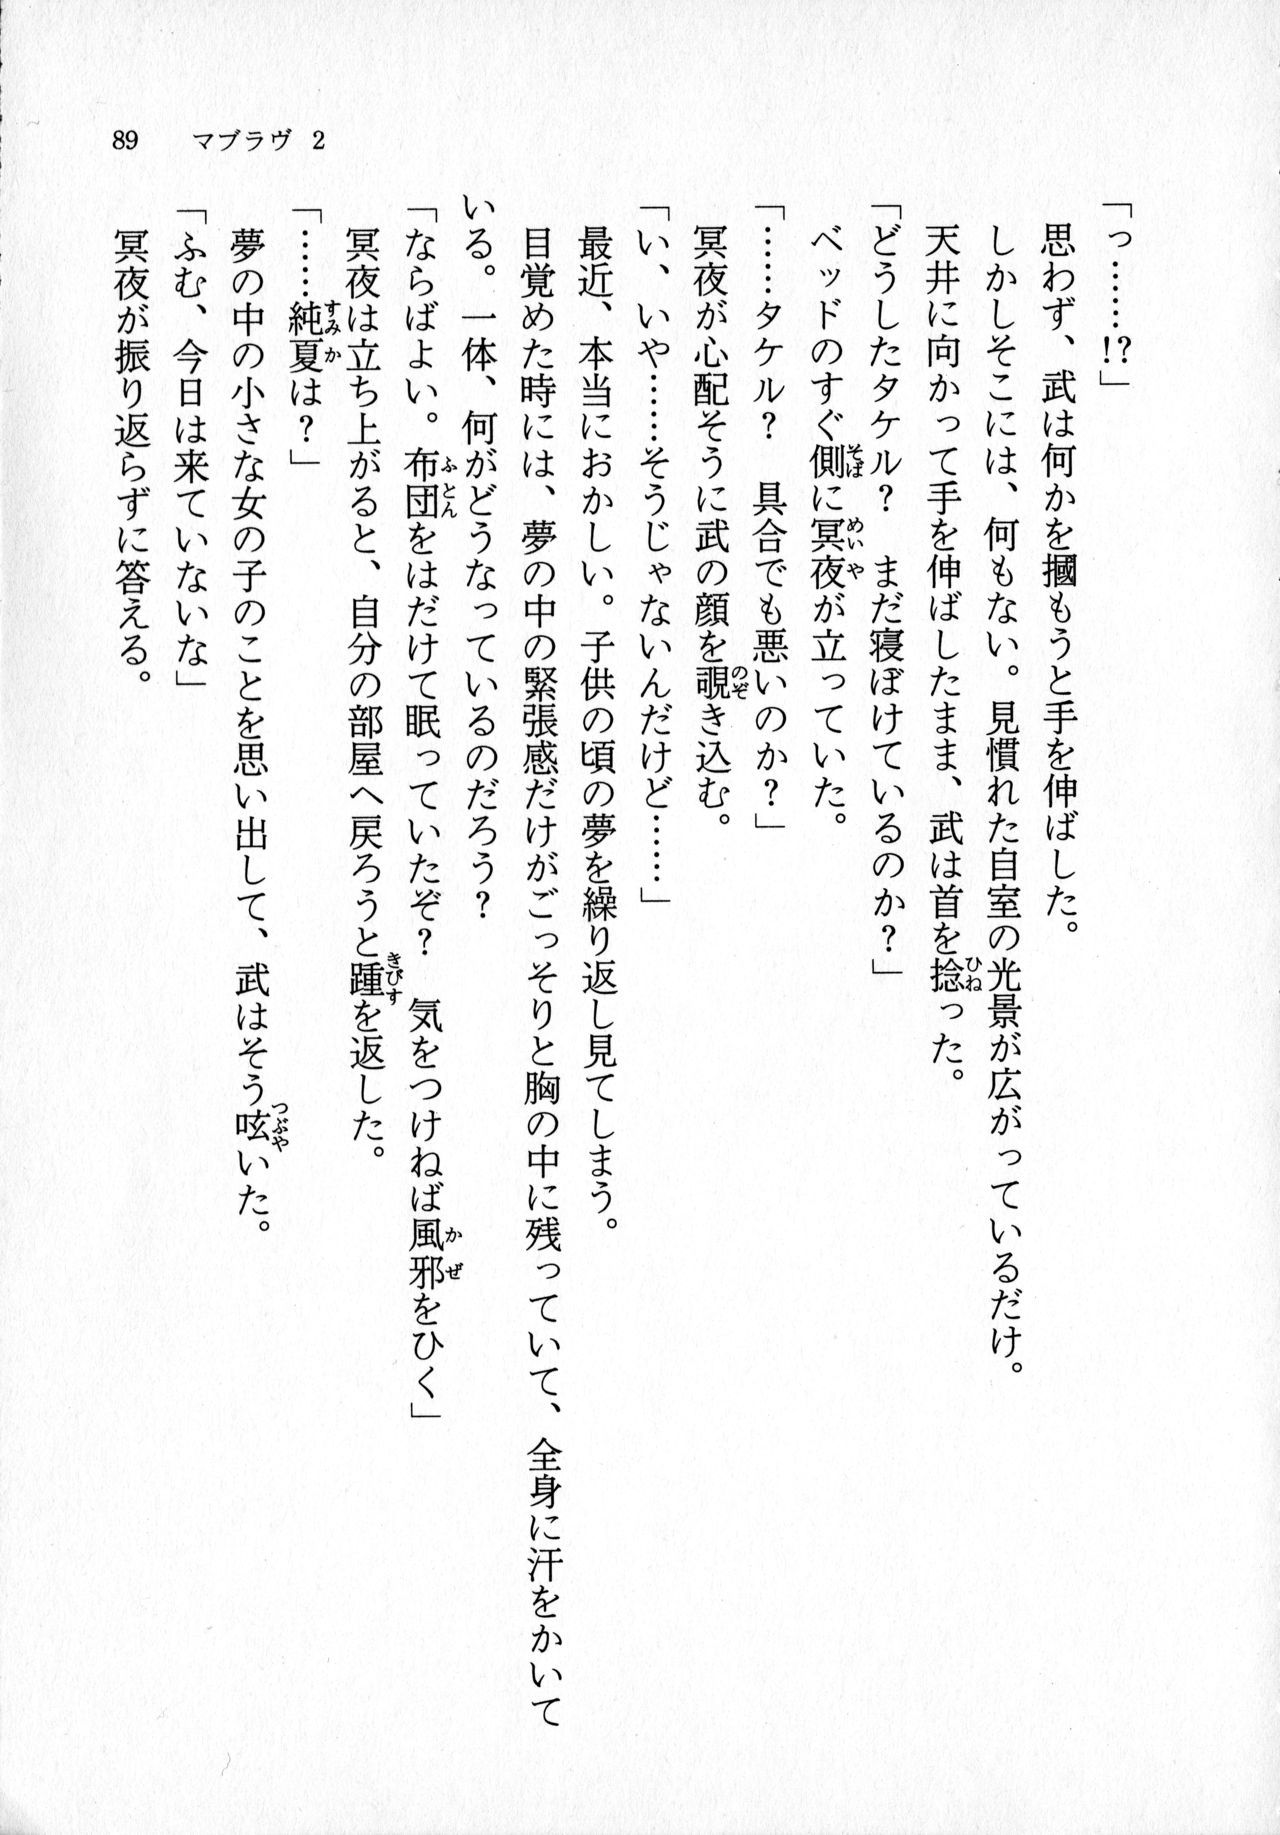 89　マブラヴ 2
「っ……!?」
　思わず、武は何かを摑もうと手を伸ばした。
　しかしそこには、何もない。見慣れた自室の光景が広がっているだけ。
　天井に向かって手を伸ばしたまま、武は首を捻った。
「どうしたタケル？　まだ寝ぼけているのか？」
　ベッドのすぐ側に冥夜が立っていた。
「……タケル？　具合でも悪いのか？」
　冥夜が心配そうに武の顔を覗き込む。
「い、いや……そうじゃないんだけど……」
　最近、本当におかしい。子供の頃の夢を繰り返し見てしまう。
　目覚めた時には、夢の中の緊張感だけがごっそりと胸の中に残っていて、全身に汗をかいて
いる。一体、何がどうなっているのだろう？
「ならばよい。布団をはだけて眠っていたぞ？　気をつけねば風邪をひく」
　冥夜は立ち上がると、自分の部屋へ戻ろうと踵を返した。
「……純夏は？」
　夢の中の小さな女の子のことを思い出して、武はそう呟いた。
「ふむ、今日は来ていないな」
　冥夜が振り返らずに答える。